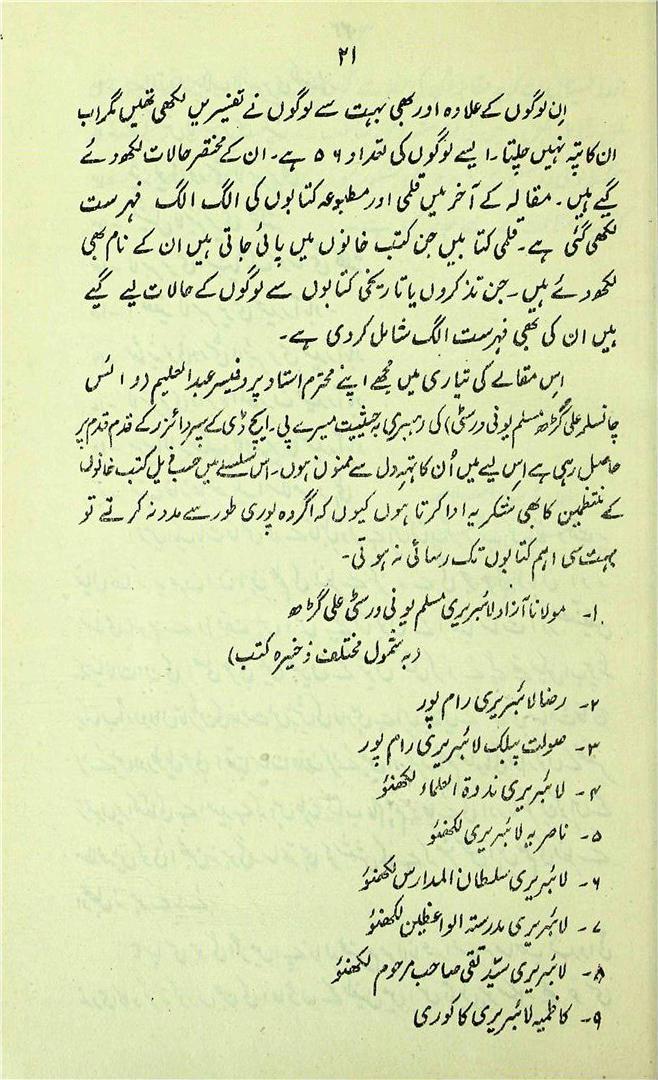 ۲۱
اِن لوگوں کے علاوہ اور بھی بہت سے لوگوں نے تفسیریں لکھی تھیں مگر اب
ان کا پتہ نہیں چلتا۔ ایسے لوگوں کی تعداد ۵۶ ہے۔ ان کے مختصر حالات لکھ دئے
گیے ہیں۔ مقالہ کے آخر میں قلمی اور مطبوعہ کتابوں کی الگ الگ فہرست
لکھی گئی ہے۔ قلمی کتابیں جن کتب خانوں میں پائی جاتی ہیں ان کے نام بھی
لکھ دئے ہیں۔ جن تذکروں یا تاریخی کتابوں سے لوگوں کے حالات لیے گیے
ہیں ان کی بھی فہرست الگ شامل کردی ہے۔
اِس مقالے کی تیاری میں مجھے اپنے محترم استاد پروفیسر عبدالعلیم (وائس
چانسلر علی گڑھ مسلم یونی ورسٹی) کی رہبری بہ حیثیت میرے پی۔ ایچ ڈی کے سپروائزر کے قدم قدم پر
حاصل رہی ہے اِس لیے میں اُن کا تہہِ دل سے ممنون ہوں۔ اس سلسلے میں حسب ذیل کتب خانوں
کے منتظمین کا بھی شکریہ ادا کرتا ہوں کیوں کہ اگر وہ پوری طور سے مدد نہ کرتے تو
بہت سی اہم کتابوں تک رسائی نہ ہوتی۔
۱۔ مولانا آزاد لائبریری مسلم یونی ورسٹی علی گڑھ
(بہ شمول مختلف ذخیرہ کتب)
۲۔ رضا لائبریری رام پور
۳۔ صولت پبلک لائبریری رام پور
۴۔ لائبریری ندوۃ العلماء لکھنؤ
۵۔ ناصریہ لائبریری لکھنؤ
۶۔ لائبریری سلطان المدارس لکھنؤ
۷۔ لائبریری مدرستہ الواعظین لکھنؤ
۸۔ لائبریری سیّد تقی صاحب مرحوم لکھنؤ
۹۔ کاظمیہ لائبریری کاکوری